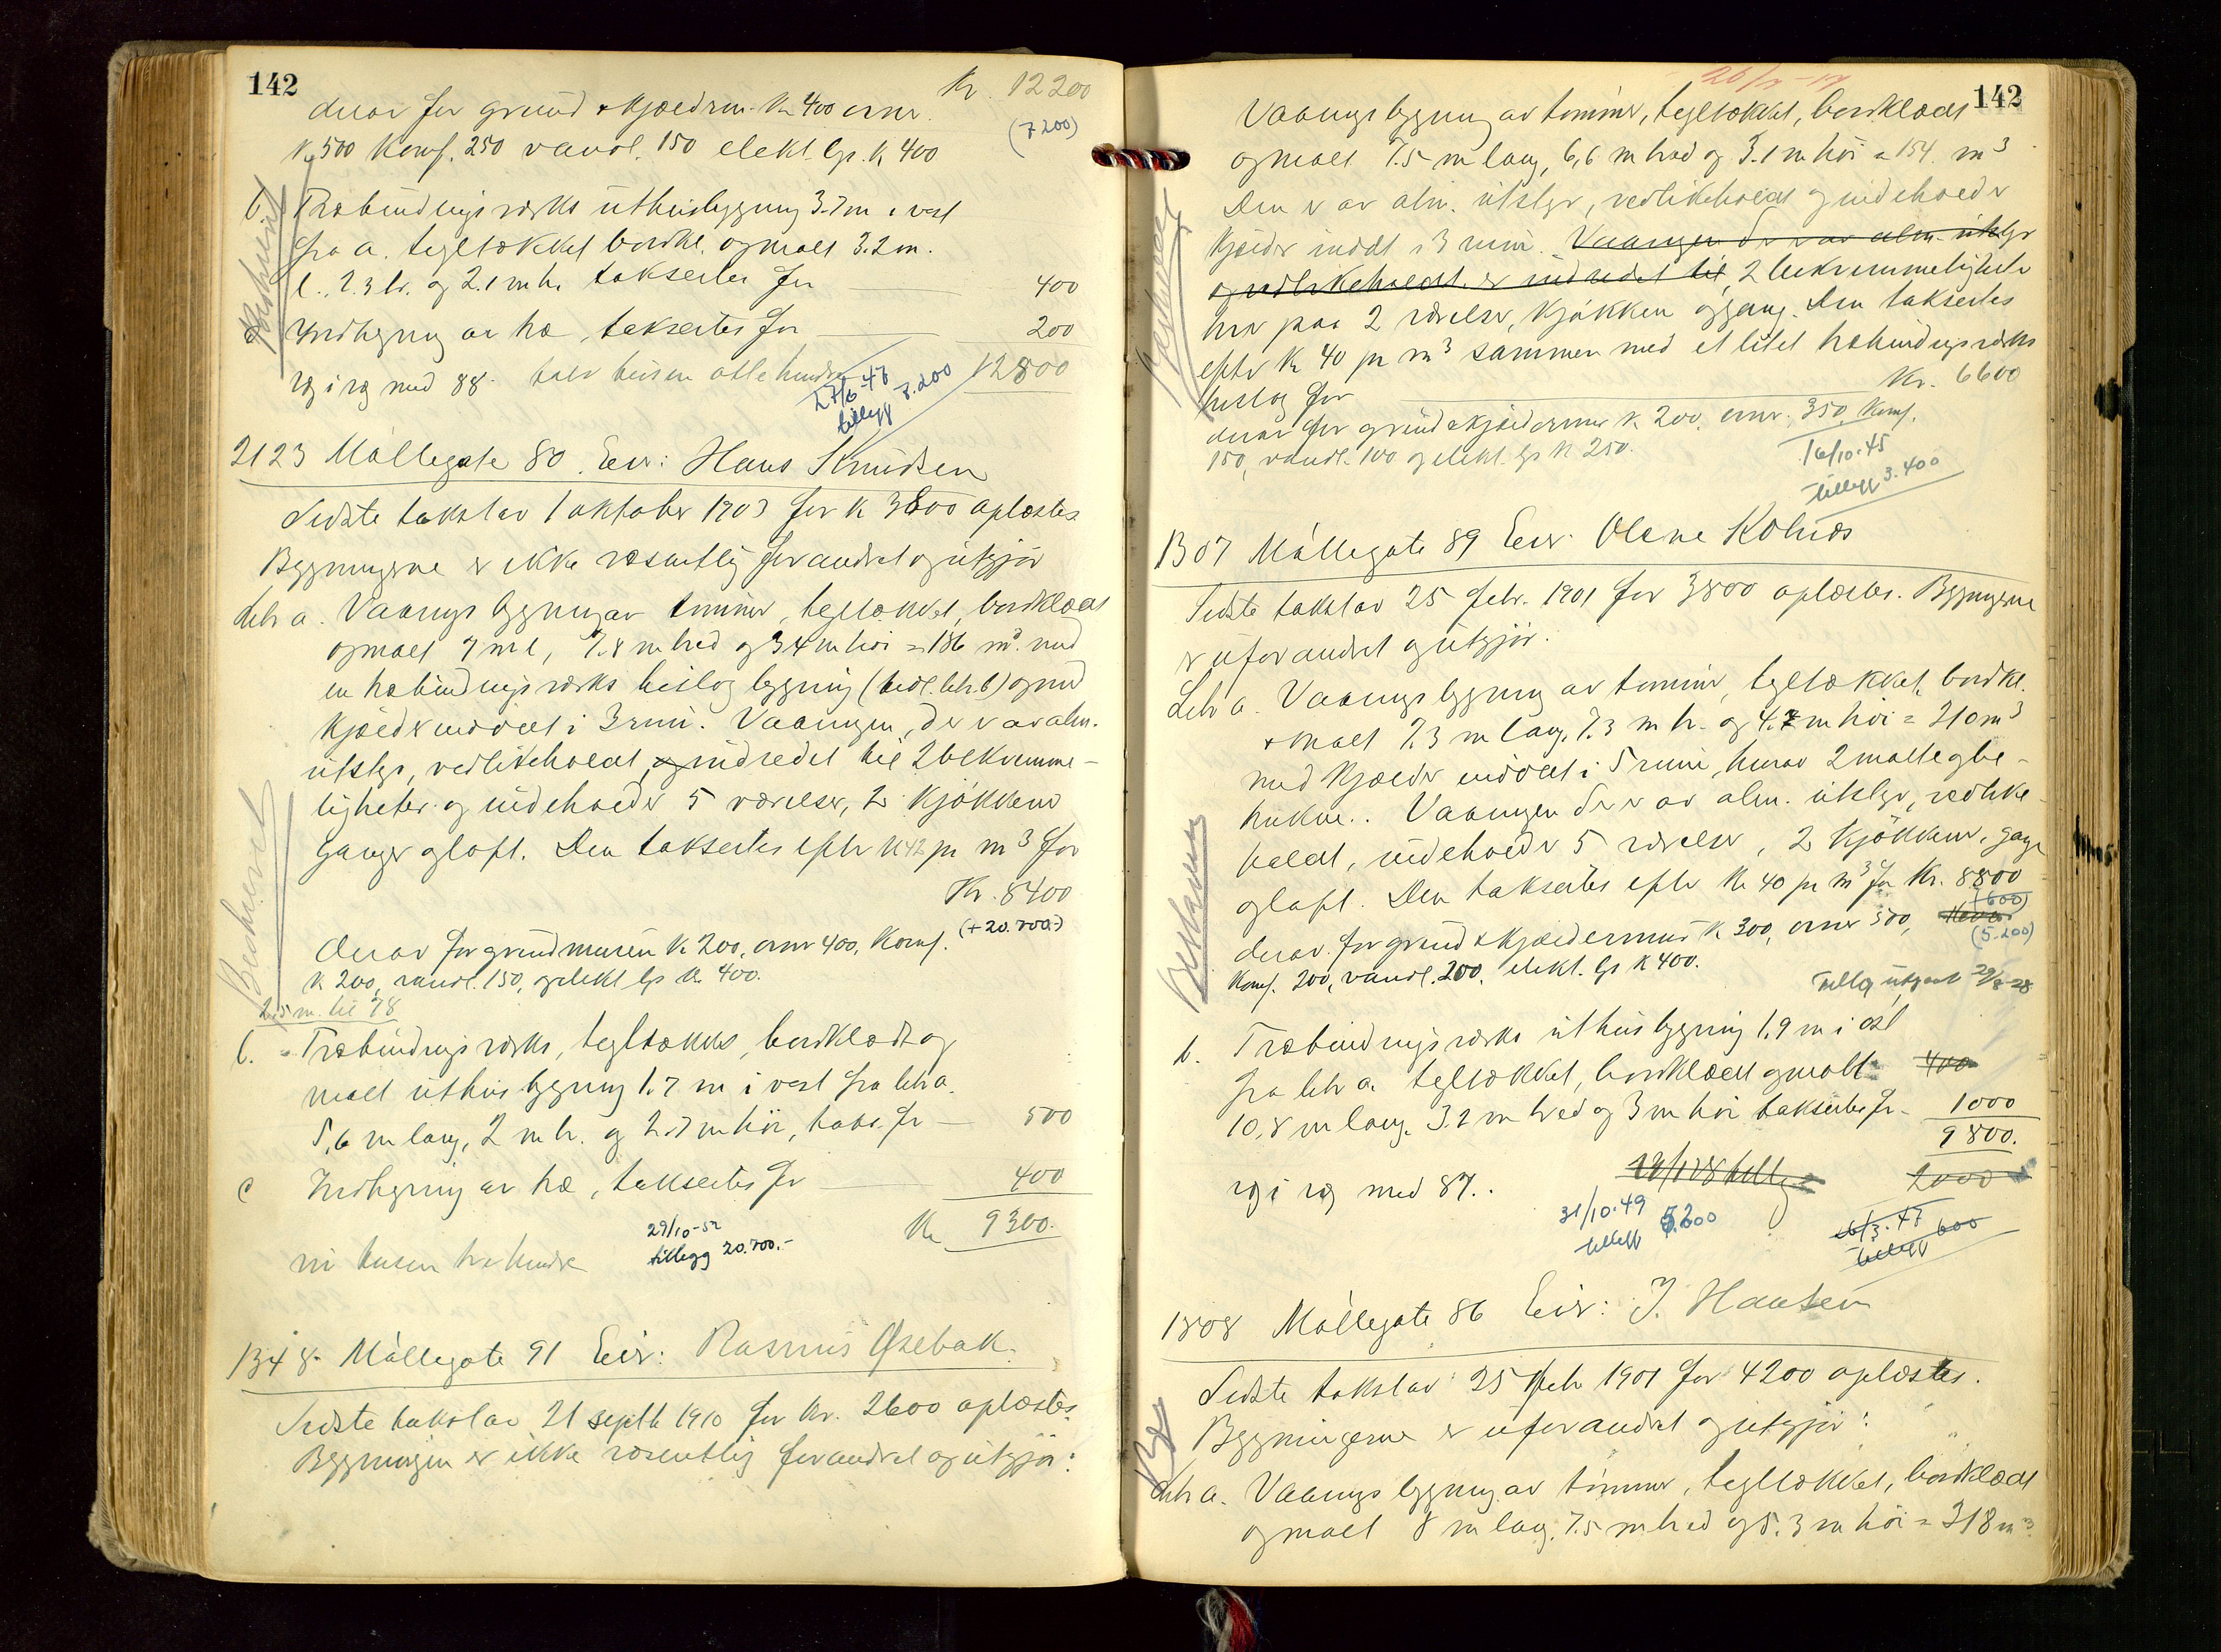 142
Kr. 12200
derav for grund & kjældrm. Kr 400 ovner
(7200)
Kr 500 komf. 250 vandl. 150 elekt. lys. Kr 400
b. Træbindingsverks uthusbygning 3.7 m i vest
fra a. tegltækket bordkl. og malt 3.2 m.
l., 2.3 br. og 2.1 m h. takseres for 400
c Indhegning av træ, takseres for 200
rg i rg med 88. tolv tusen otte hundre 12800
27/6-47
tillegg 7.200
2123 Möllegate 80. Eier: Hans Knudsen
Sidste takst av 1 oktober 1903 for kr 3800 oplæstes
Bygningerne er ikke væsentlig forandret og utgjör
Litr a. Vaaningsbygning av tömmer, tegltækket, bordklædt
og malt 7 m l, 7.8 m bred og 3.4 m höi = 186 m³. med
en træbindingsverks bislagbygning (bedl. litr. b) og med
kjælder inddelt i 3 rum. Vaaningen, der er av alm.
utstyr, vedlikeholdt, og indredet til 2 bekvemme-
ligheter og indeholder 5 værelser, 2 kjökkener
ganger og loft. Den takseres efter kr 42 pr m³ for
Kr. 8400
(+20.700.-)
derav for grundmuren kr 200, ovner 400, komf.
kr 200, vandl. 150, og elekt lys kr 400.
2.5 m. til 78
b. Træbindingsverks, tegltækket, bordklædt og
malt uthusbygning 1.7 m i vest fra litr a.
5,6 m lang, 2 m br. og 2.7 m höi, taks. for 500
c Indhegning av træ, takseres for 400
Kr 9300.
ni tusen tre hundre
29/10-52
tillegg 20.700.-
1348 Möllegate 91 Eier: Rasmus Øsebak.
Sidste takst av 21 septb 1910 for kr. 2600 oplæstes.
Bygningen er ikke væsentlig forandret og utgjör:
142
Vaaningsbygning av tömmer, tegltækket, bordklædt
og malt 7.5 m lang, 6,6 m bred og 3.1 m höi = 154 m³
Den er av alm. utstyr, vedlikeholdt og indeholder
kjælder inddelt i 3 rum. Vaaningen der er av alm. utstyr
og vedlikeholdt er indredet til 2 bekvemmeligheter
hver paa 2 værelser, kjökken og gang. Den takseres
efter kr 40 pr m³ sammen med et litet træbindingsverks
bislag for Kr. 6600
derav for grund & kjældermur kr 200, ovner 350, komf.
150, vandl. 100 og elekt. lys kr 250.
16/10.45
tillegg 3.400
1307 Möllegate 89 Eier: Olene Kolnes
Sidste takst av 25 febr. 1901 for 3800 oplæstes. Bygningerne
er uforandret og utgjör:
Litr a. Vaaningsbygning av tömmer, tegltækket, bordkl.
& malt 7.3 m lang, 7.3 m br. og 4.7 m höi = 210 m³
med kjælder inddelt i 5 rum, hvorav 2 malte og be-
trukne. Vaaningen der er av alm. utstyr, vedlike-
holdt, indeholder 5 værelser, 2 kjökkener, gange
og loft. Den takseres efter kr 40 pr m³ for Kr. 8800
(600)
derav for grund & kjældermur kr 300, ovner 500,
(5.200)
komf. 200, vandl. 200, elekt. lys kr 400.
b. Træbindingsverks uthusbygning 1.9 m i öst
fra litr a. tegltækket, bordklædt og malt 400
10,8 m lang, 3.2 m bred og 3 m höi takseres for 1000
9800.
rg i rg med 87. 2000
31/10.49
tillegg 5.200
6/3.47
tillegg 600
1308 Möllegate 86 Eier: J. Hansen
Sidste takst av 25 febr 1901 for 4200 oplæstes.
Bygningerne er uforandret og utgjör:
Litr a. Vaaningsbygning av tömmer, tegltækket, bordklædt
og malt 8 m lang, 7.5 m bred og 5.3 m höi = 318 m³